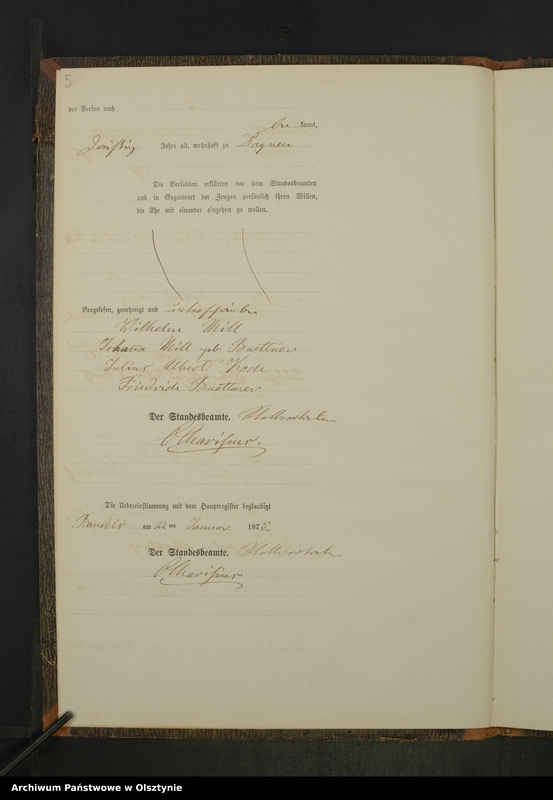 5
der Person nach
be kannt,
dreißig Jahre alt, wohnhaft zu
Die Verlobten erklärten vor dem Standesbeamten
und in Gegenwart der Zeugen persönlich ihren Willen,
die Ehe mit einander eingehen zu wollen.
Vorgelesen, genehmigt und unterschrieben
Wilhelm Will
Johanna Will geb. Buettner
Julius Albert Kode
Friedrich Buettner
Der Standesbeamte.
Die Uebereinstimmung mit dem Hauptregister beglaubigt
am 22 ten Januar 1875
Der Standesbeamte.
Archiwum Państwowe w Olsztynie